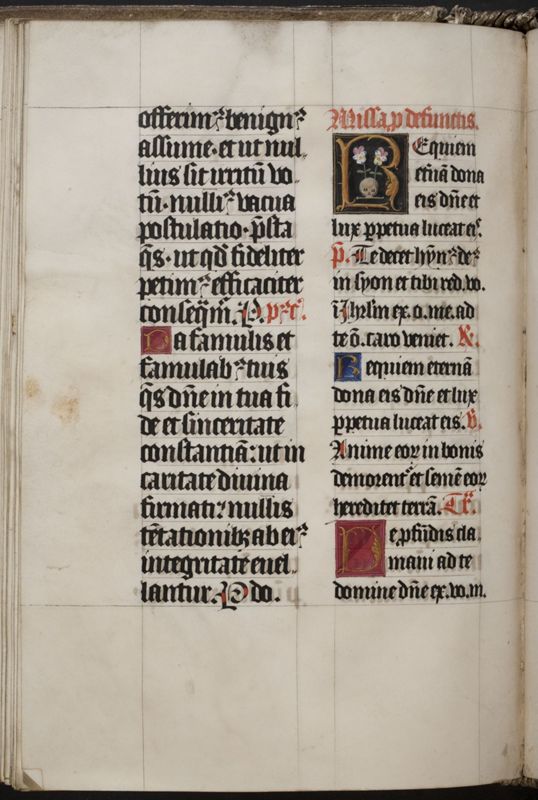 offerimꝰ benignꝰ
assume · et ut nul
lius sit irritū vo
tū · nulliꝰ vacua
postulatio · p̄sta
q̄s · ut qd̄ fideliter
petimꝰ efficaciter
conseq̄m̄. P. pꝰ c̄.
Da famulis et
famulabꝰ tuis
q̄s dn̄e in tua fi
de et sinceritate
constantiā : ut in
caritate diuina
firmati : nullis
tētationibꝫ ab eiꝰ
integritate euel
lantur. P do.
Missa p defunctis.
Requiem
et̄nā dona
eis dn̄e et
lux ꝑpetua luceat eis.
p̄. Te decet hȳnꝰ deꝰ
in syon et tibi red. vo.
ī Jhrl̄m ex. o. me. ad
te ō. caro veniet. R̄.
Requiem eternā
dona eis dn̄e et lux
ꝑpetua luceat eis. v̄.
Anime eoꝝ in bonis
demorent᷑ et semē eoꝝ
hereditet terrā. Tr̄.
De ꝓfūdis cla
maui ad te
domine dn̄e ex. vo. m.